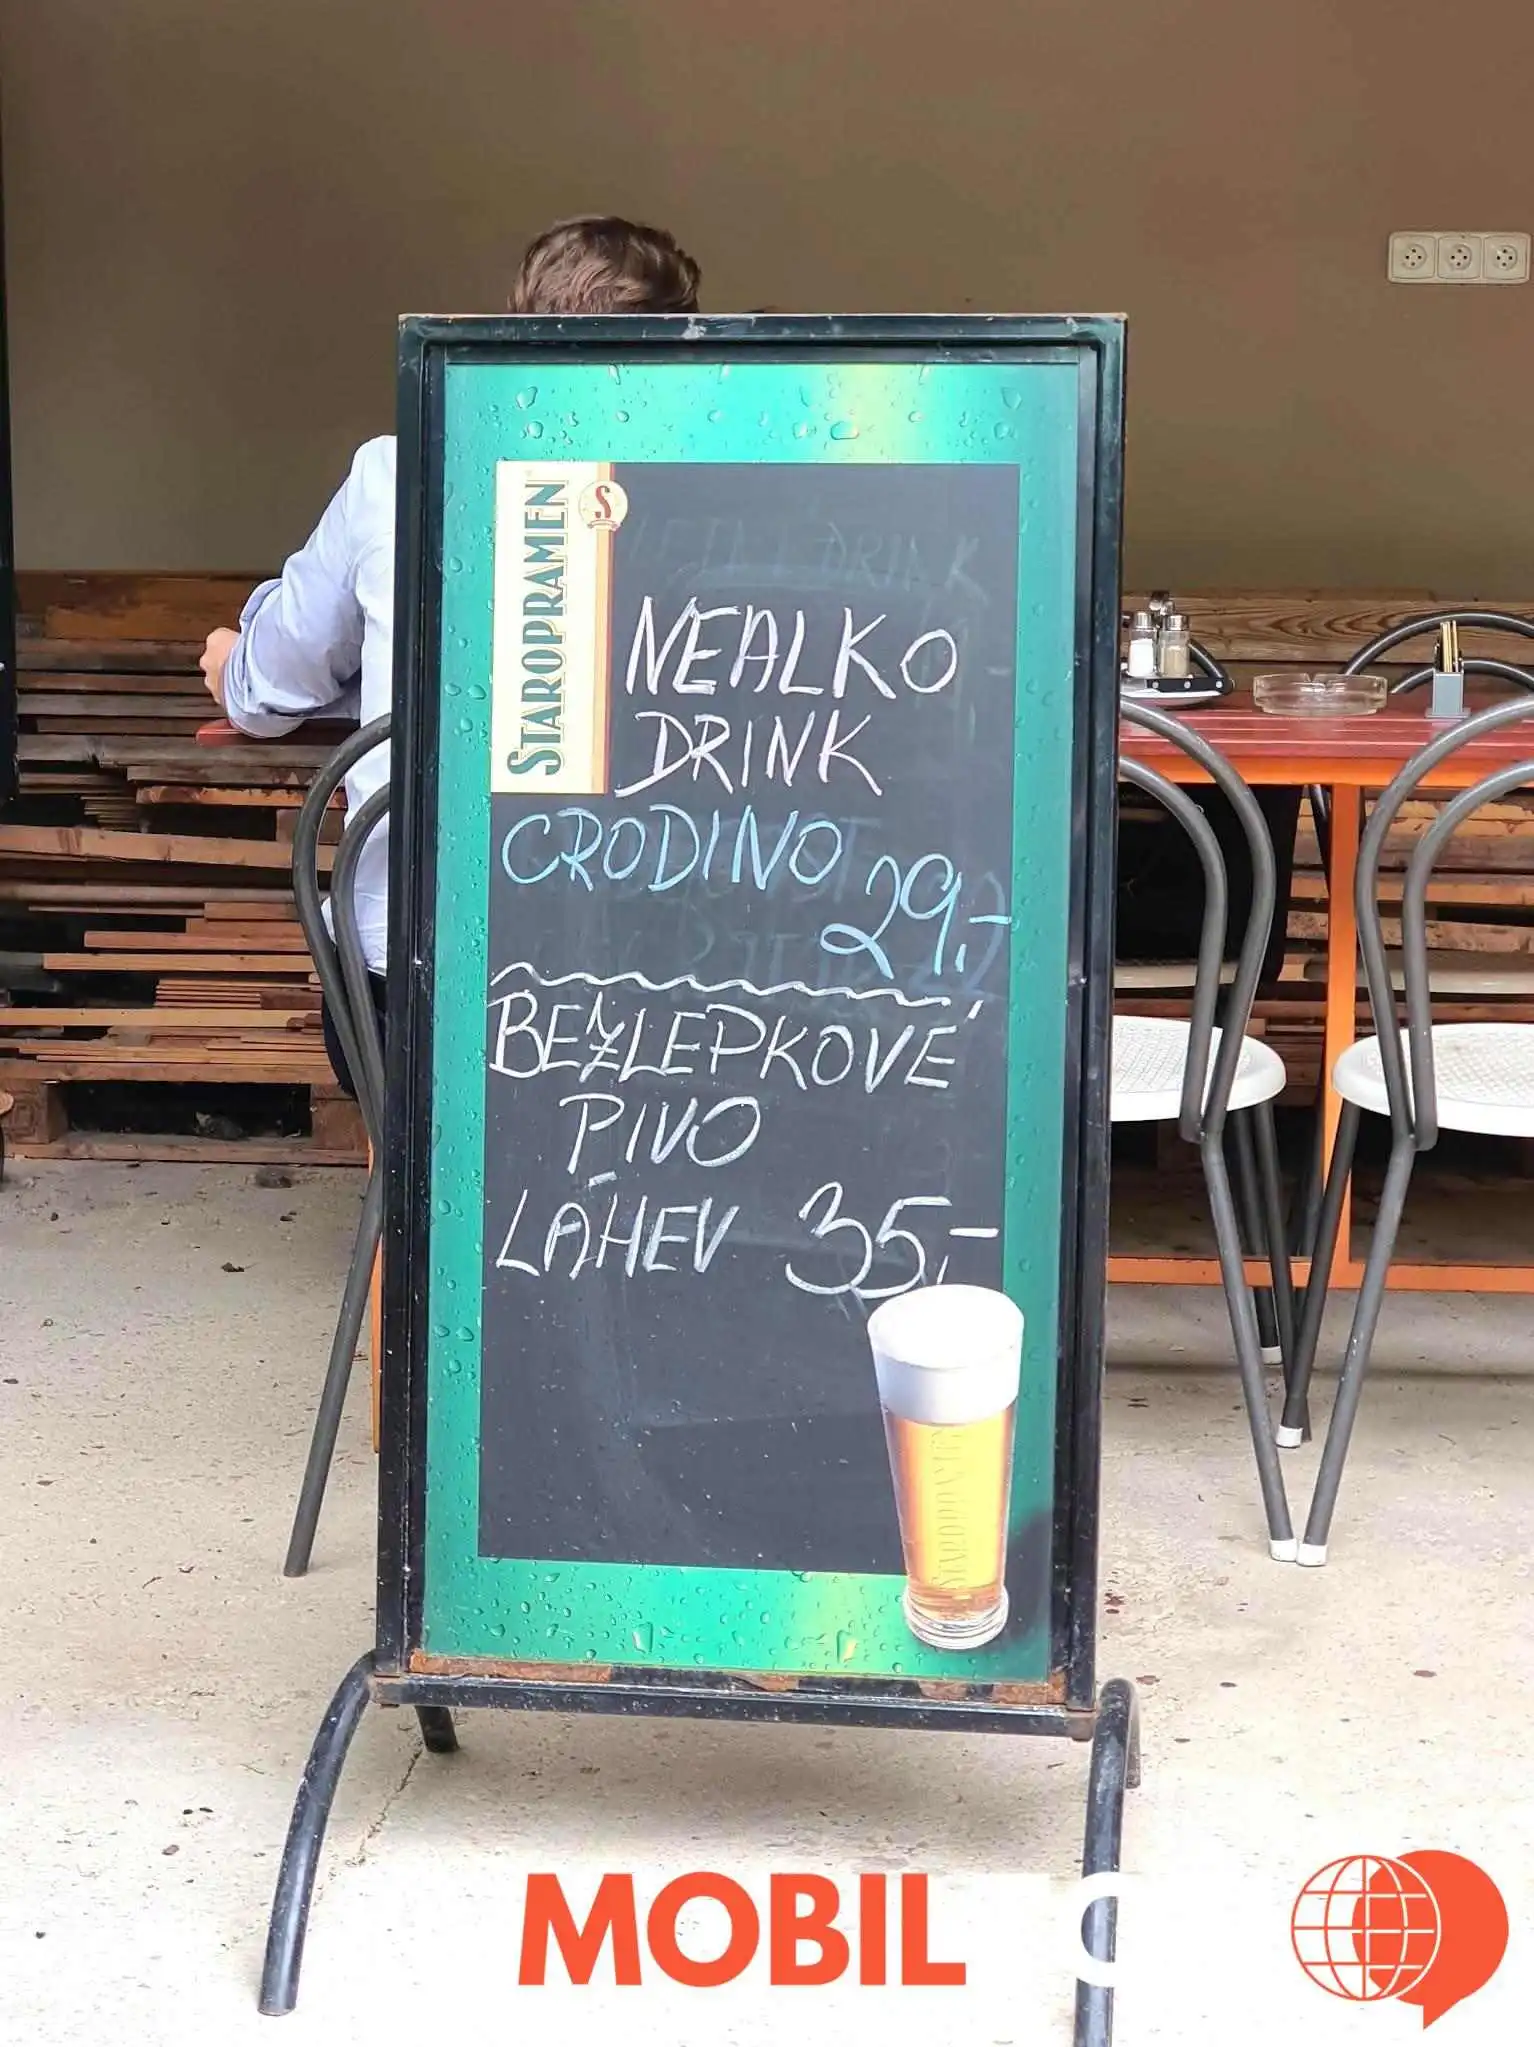 STAROPRAMEN
S
DRINK
NEALKO
DRINK
CRODINO
29,-
BEZLEPKOVÉ
PIVO
LÁHEV 35,-
STAROPRAMEN
MOBIL